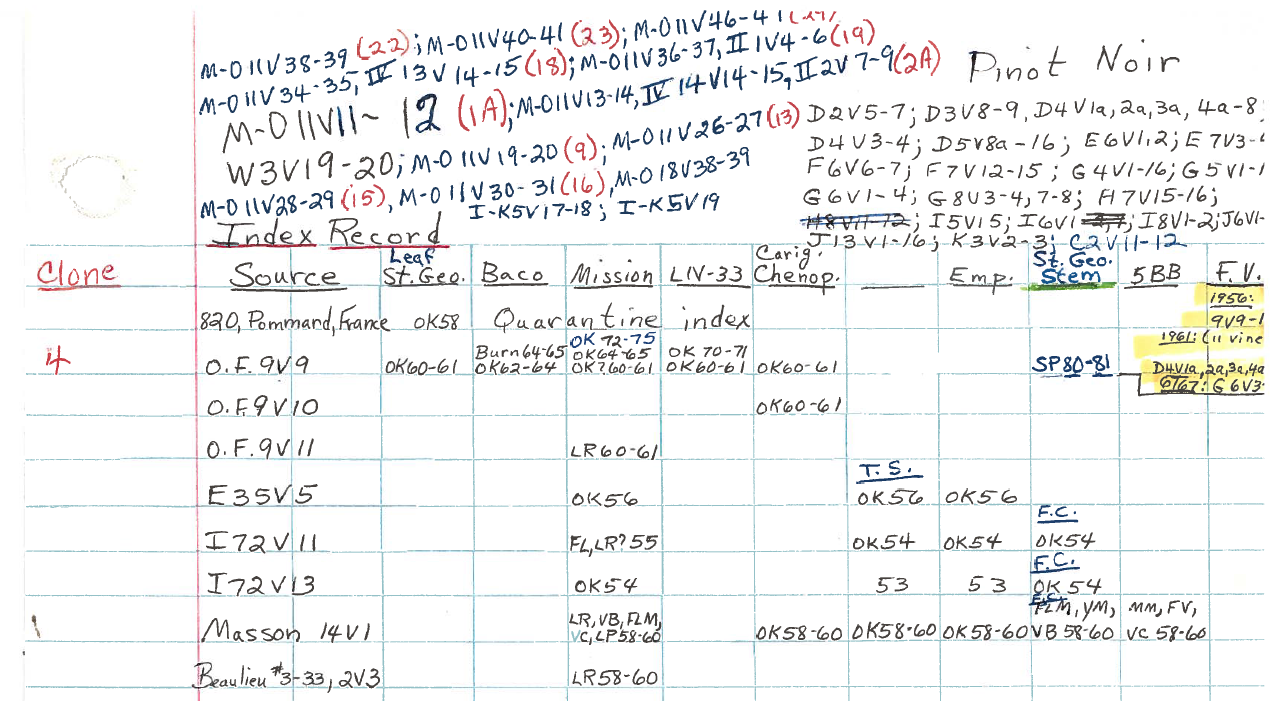 M-O 11V38-39 (22); M-O 11V40-41 (23); M-O 11V46-41
M-O 11V34-35, IV 13V14-15 (18); M-O 11V36-37, II 1V4-6 (19)
M-O 11V11-12 (1A); M-O 11V13-14, IV 14V14-15, II 2V7-9 (2A)
Pinot Noir
W3V19-20; M-O 11V19-20 (9); M-O 11V26-27 (13)
M-O 11V28-29 (15), M-O 11V30-31 (16), M-O 18V38-39
I-K5V17-18; I-K5V19
D2V5-7; D3V8-9, D4V1a, 2a, 3a, 4a-8
D4V3-4; D5V8a-16; E6V1,2; E7V3-
F6V6-7; F7V12-15; G4V1-16; G5V1-1
G6V1-4; G8V3-4, 7-8; H7V15-16;
H8V11-12; I5V15; I6V1 I8V1-2; J6V1-
J13V1-16; K3V2-3; C2V11-12
Index Record
Clone Source Leaf St. Geo. Baco Mission LIV-33 Carig. Chenop. Emp. St. Geo. Stem 5BB F.V.
820, Pommand, France OK58 Quarantine index
1956:
9V9-1
OK 72-75
1961: (11 vine
Burn 64-65 OK64-65 OK 70-71
4 O.F. 9V9 OK60-61 OK62-64 OK?60-61 OK60-61 OK60-61 SP80-81 D4V1a, 2a, 3a, 4a
6167: G6V3-
O.F. 9V10 OK60-61
O.F. 9V11 LR60-61
T.S.
E35V5 OK56 OK56 OK56
F.C.
I72V11 FL, LR?55 OK54 OK54 OK54
F.C.
I72V13 OK54 53 53 OK54
LR, VB, FLM, FLM, YM, MM, FV,
Masson 14V1 VC, LP58-60 OK58-60 OK58-60 OK58-60 VB 58-60 VC 58-60
Beaulieu #3-33, 2V3 LR58-60